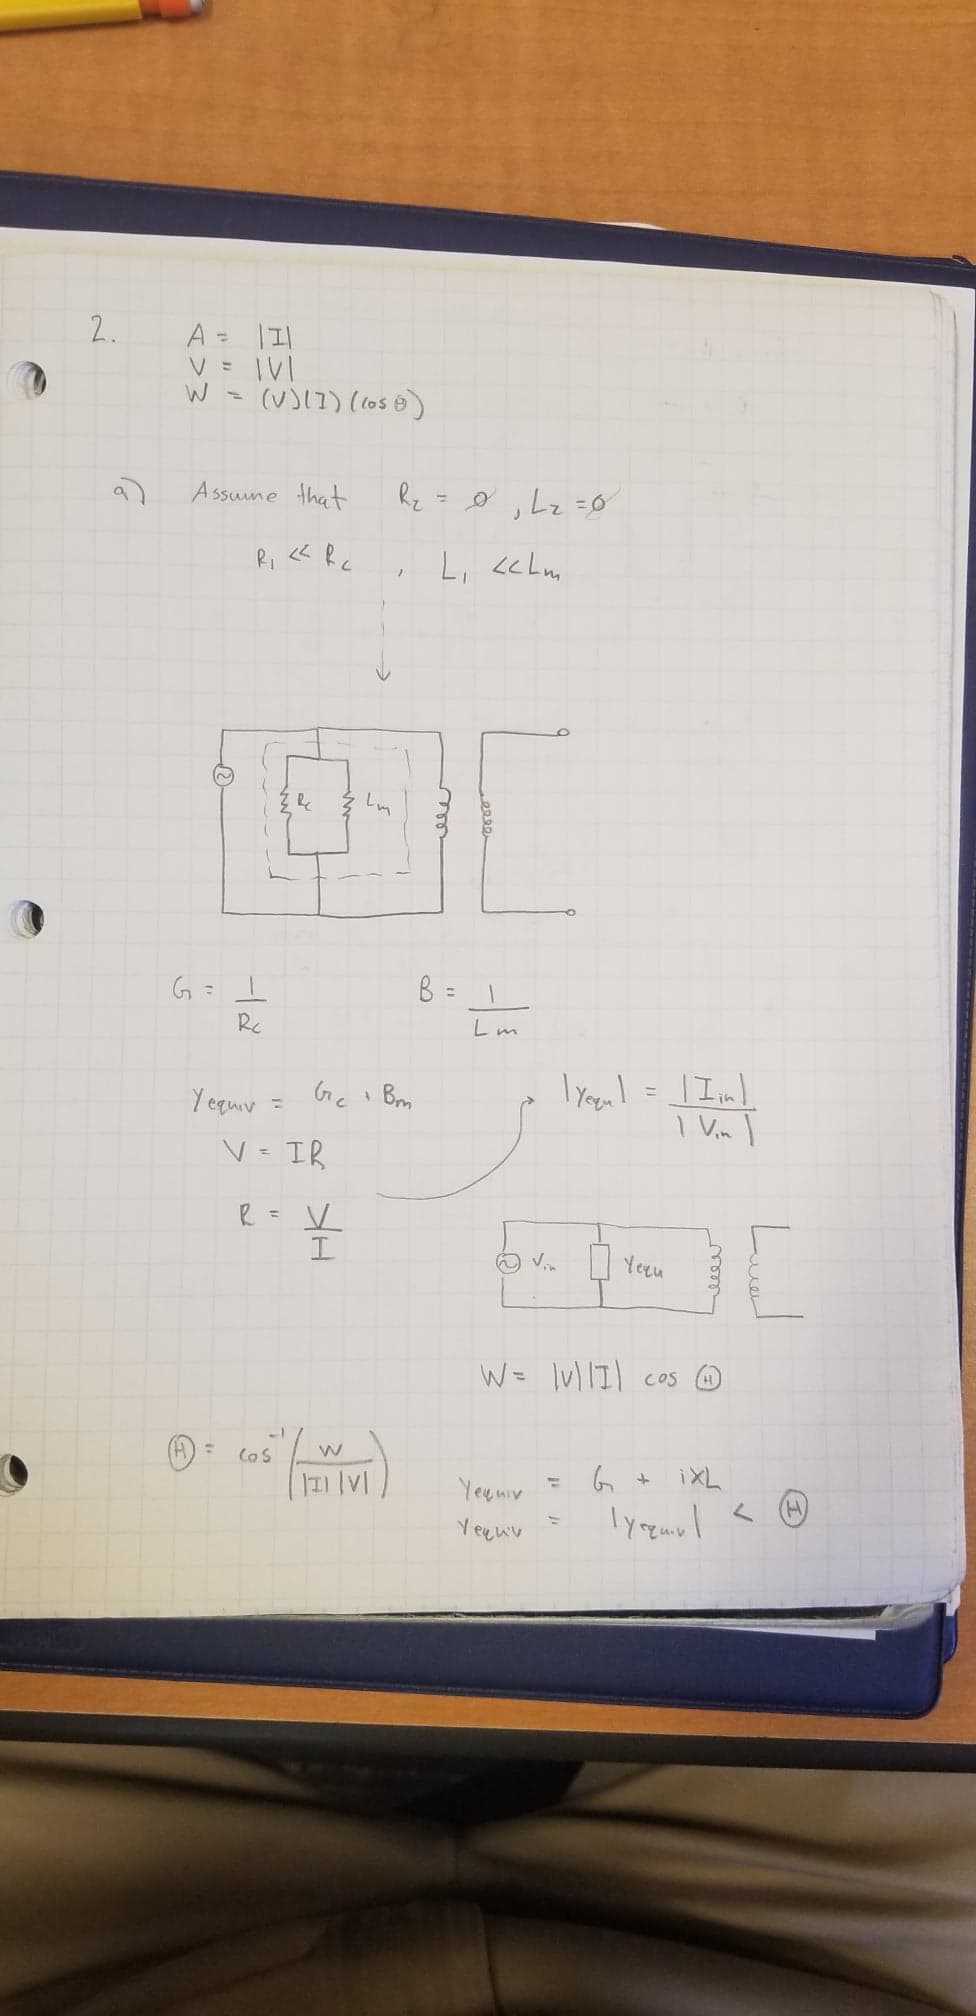 2. A = |I|
V = |V|
W = (V)(I)(cos θ)
a) Assume that R₂ = ∅, L₂ = ∅
R₁ << Rc, L₁ << Lm
Rc Lm
G = 1/Rc B = 1/Lm
Yequiv = Gc, Bm
|Yequ| = |Iin|/|Vin|
V = IR
R = V/I
Vin Yequ
W = |V||I| cos Ⓗ
Ⓗ = cos⁻¹(W/|I||V|)
Yequiv = G + iXL
Yequiv = |yequiv| < Ⓗ